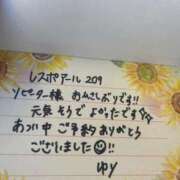 レスポアール209
リピーター様 おひさしぶりです!!
元気そうでよかったです
あつい中 ご予約ありがとう
ございました!!
ゆy